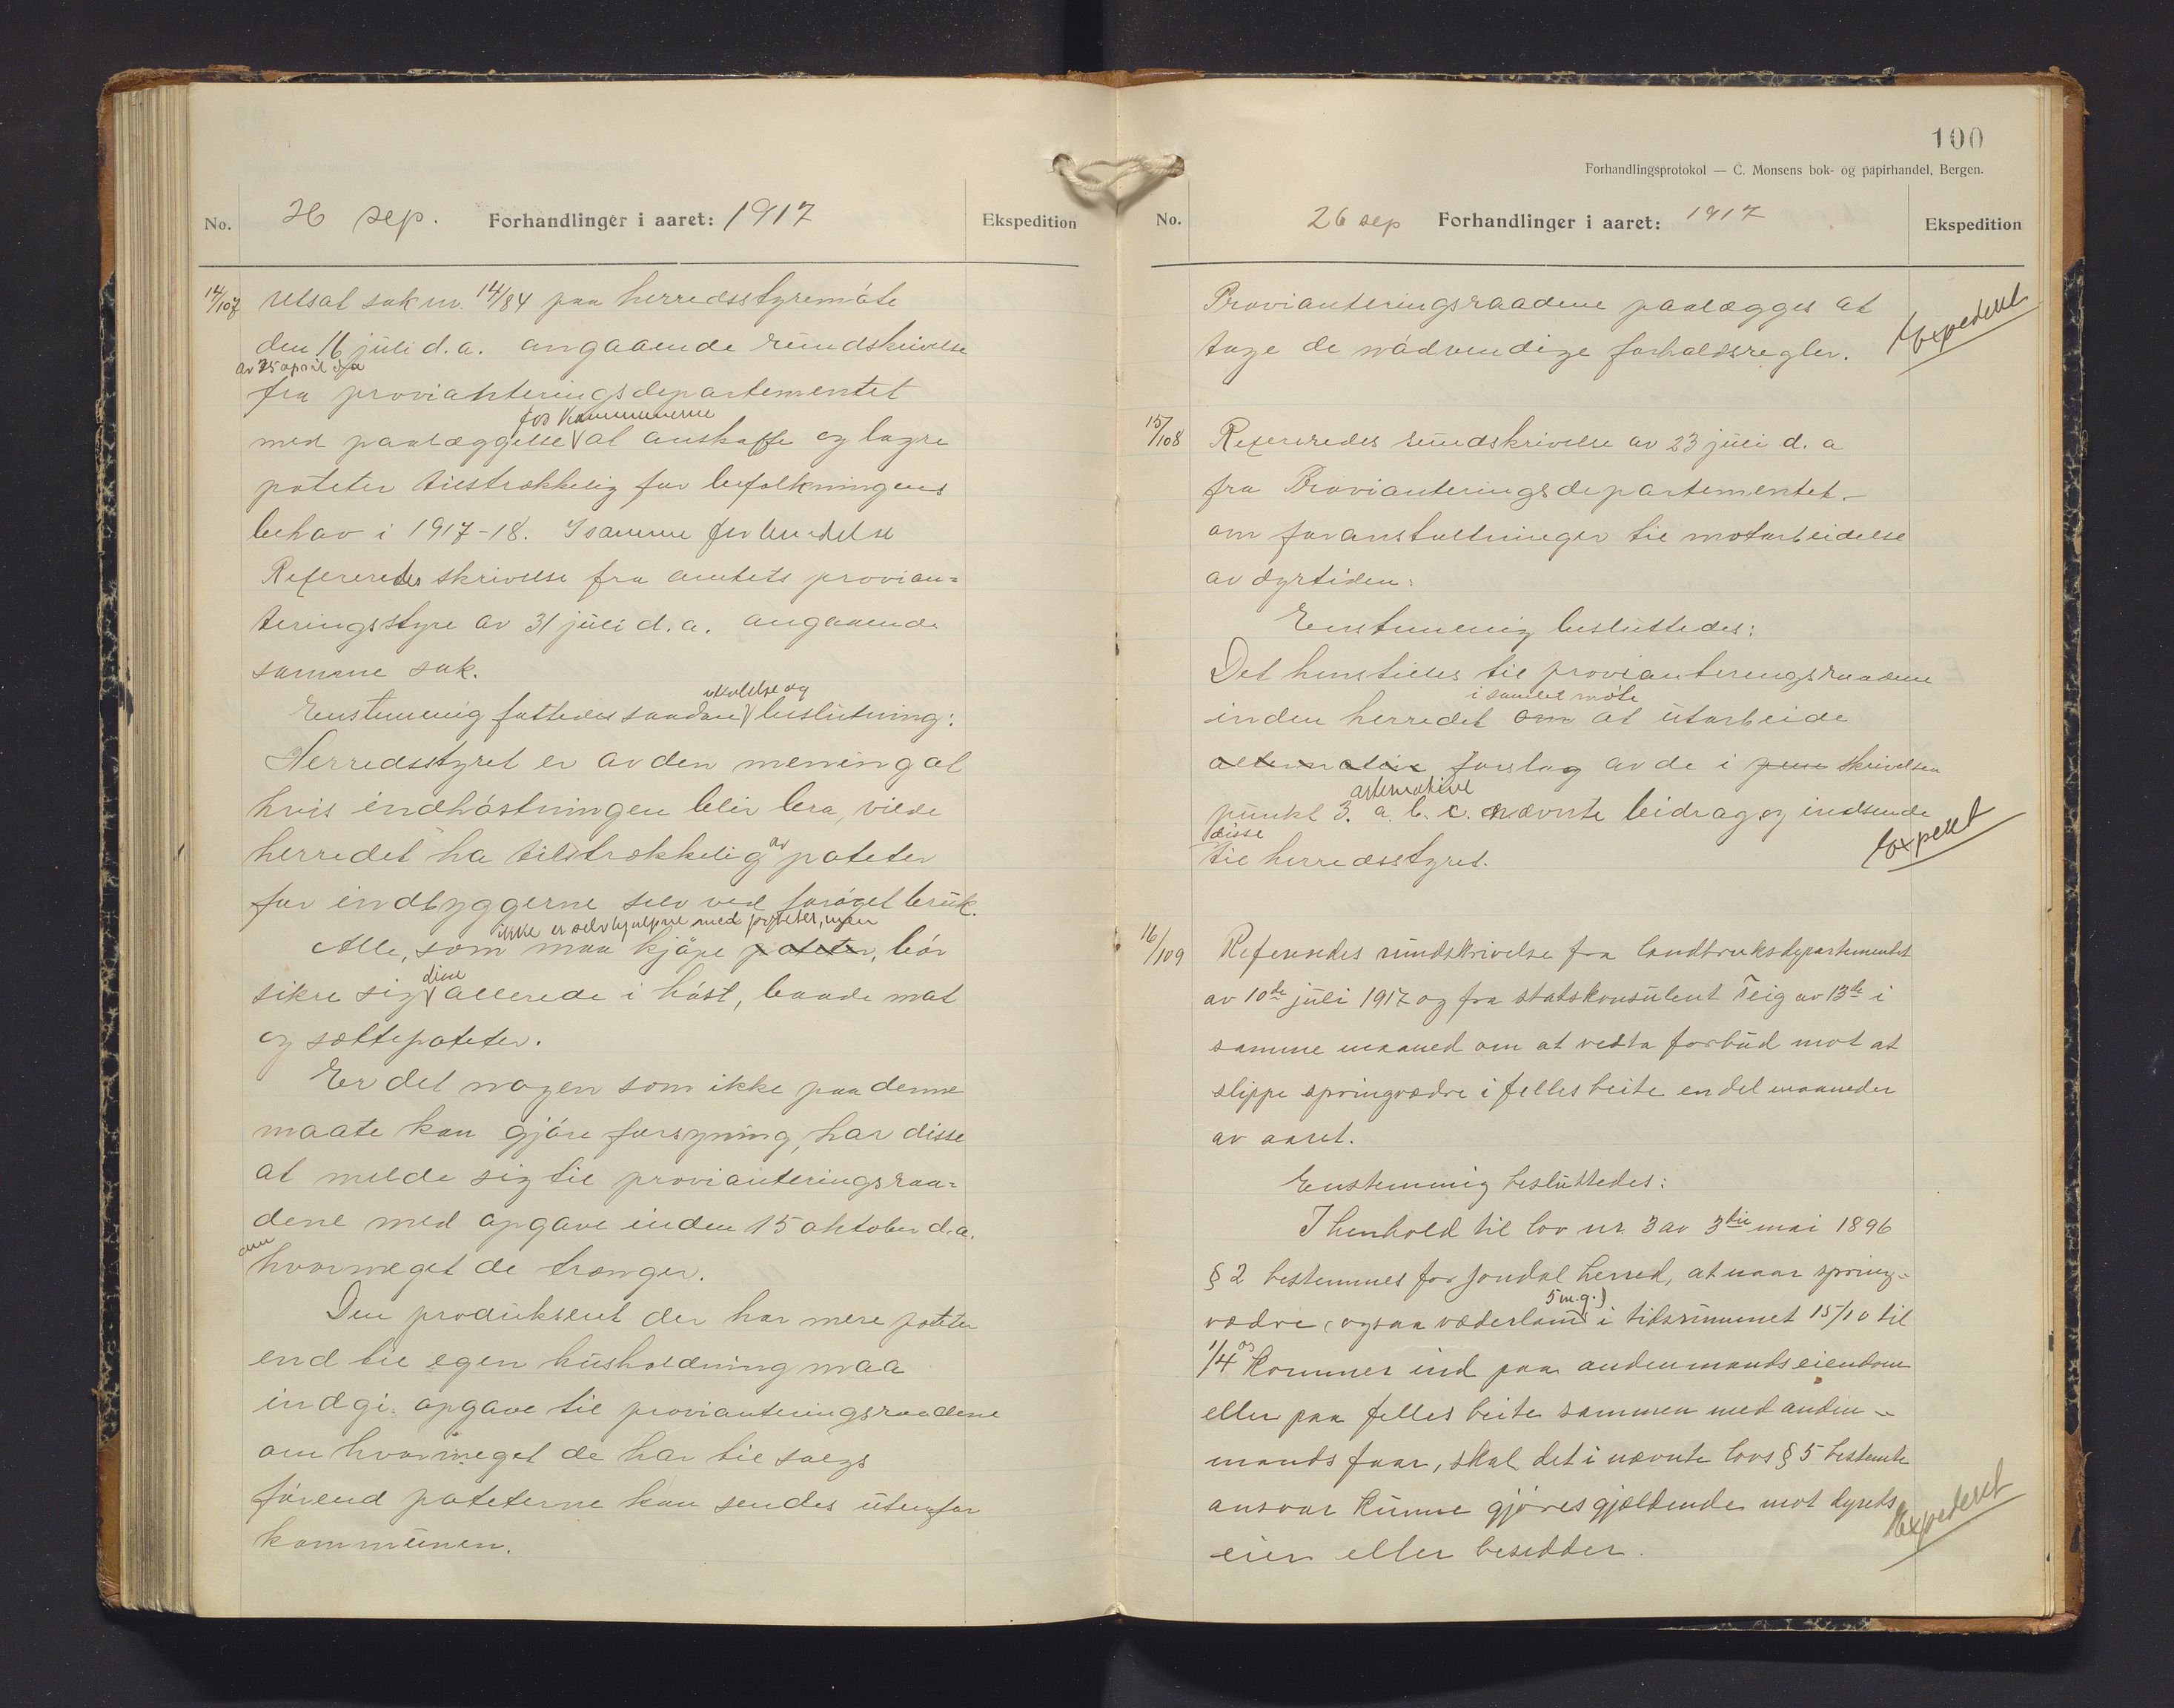 No. 26 sep. Forhandlinger i aaret: 1917 Ekspedition
14/107 Utsat sak nr. 14/84 paa herredsstyremöte
den 16 juli d.a. angaaende rundskrivelse
av 25 april d.a
fra provianteringsdepartementet
for kommunerne
med paalæggelse at anskaffe og lagre
poteter tilstrækkelig for befolkningens
behov i 1917-18. I samme forbindelse
Refereredes skrivelse fra amtets provian=
teringsstyre av 31 juli d.a. angaaende
samme sak.
uttalelse og
Enstemmig fattedes saadan beslutning:
Herredsstyret er av den mening at
hvis indhöstningen blir bra, vilde
herredet ha tilstrækkelig av poteter
for indbyggerne selv ved foröget bruk.
ikke er selvhjulpne med poteter, men
Alle, som maa kjöpe poteter, bör
sikre sig dem allerede i höst, baade mat
og sættepoteter.
Er det nogen som ikke paa denne
maate kan gjöre forsyning, har disse
at melde sig til provianteringsraa=
dene med opgave inden 15 oktober d.a.
om
hvormeget de trænger.
Den produksent der har mere poteter
end til egen husholdning maa
indgi opgave til provianteringsraadene
om hvormeget de har til salgs
förend poteterne kan sendes utenfor
kommunen.
100
Forhandlingsprotokol — C. Monsens bok- og papirhandel, Bergen.
No. 26 sep Forhandlinger i aaret: 1917 Ekspedition
Provianteringsraadene paalægges at
tage de nödvendige forholdsregler. Expedert
15/108 Refereredes rundskrivelse av 23 juli d. a
fra Provianteringsdepartementet
om foranstaltninger til motarbeidelse
av dyrtiden:
Enstemmig besluttedes:
Det henstilles til provianteringsraadene
i samlet möte
inden herredet om at utarbeide
alternative forslag av de i skrivelsen
alternative
punkt 3. a. b. c. nævnte bidrag og indsende
disse
til herredsstyret. Expedert
16/109 Refereredes rundskrivelse fra landbruksdepartementet
av 10de juli 1917 og fra statskonsulent Teig av 13de i
samme maaned om at vedta forbud mot at
slippe springvædre i felles beite en del maaneder
av aaret.
Enstemmig besluttedes:
I henhold til lov nr. 3 av 3die mai 1896
§ 2 bestemmes for Jondal herred, at naar spring-
5 m.g.)
vædre (ogsaa væderlam i tidsrummet 15/10 til
1/4 kommer ind paa andenmands eiendom
eller paa felles beite sammen med anden-
mands faar, skal det i nævnte lovs § 5 bestemte
ansvar kunne gjöres gjældende mot dyrets
eier eller besidder. Expedert